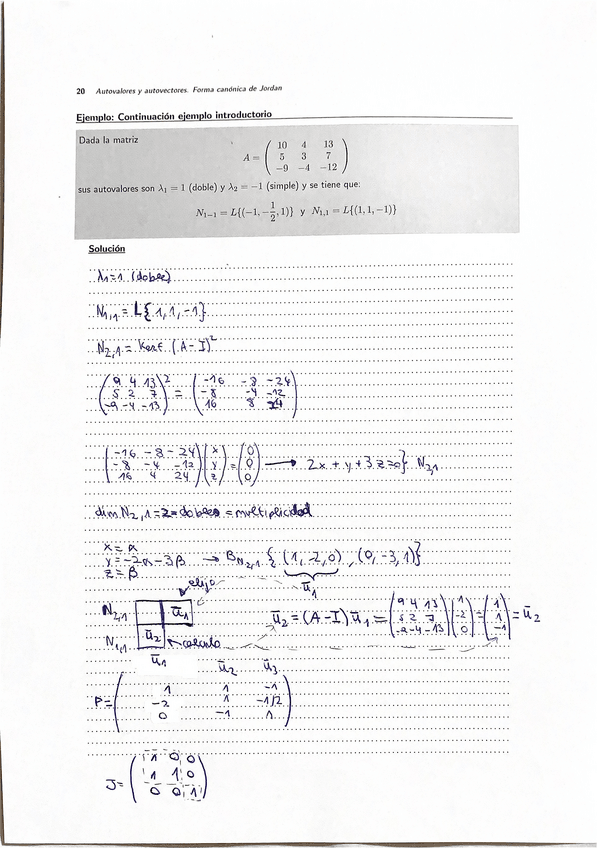 20 Autovalores y autovectores. Forma canónica de Jordan
Ejemplo: Continuación ejemplo introductorio
Dada la matriz
A = ( 10 4 13
5 3 7
−9 −4 −12 )
sus autovalores son λ₁ = 1 (doble) y λ₂ = −1 (simple) y se tiene que:
N₁₋₁ = L{(−1, −1/2, 1)} y N₁,₁ = L{(1, 1, −1)}
Solución
λ1 = 1 (doble)
N₁,₁ = L{1, 1, −1}
N₂,₁ = Ker (A − I)²
( 9 4 13
5 2 7
−9 −4 −13 )² = ( −16 −8 −24
−8 −4 −12
16 8 24 )
( −16 −8 −24
−8 −4 −12
16 4 24 ) ( x
y
z ) = ( 0
0
0 ) → 2x + y + 3z = 0} N₂,₁
dim N₂,1 = 2 = doble = multiplicidad
x = α
y = −2α − 3β → B N₂,₁ { (1, −2, 0), (0, −3, 1)}
z = β
ū₁
elijo
N₂,₁ ū₁
N₁,₁ ū₂ ← calculo
ū₂ = (A − I) ū₁ = ( 9 4 13
5 2 7
−9 −4 −13 ) ( 1
−2
0 ) = ( 1
1
−1 ) = ū₂
ū₁ ū₂ ū₃
P = ( 1 1 −1
−2 1 −1/2
0 −1 1 )
J = ( 1 0 0
1 1 0
0 0 1 )